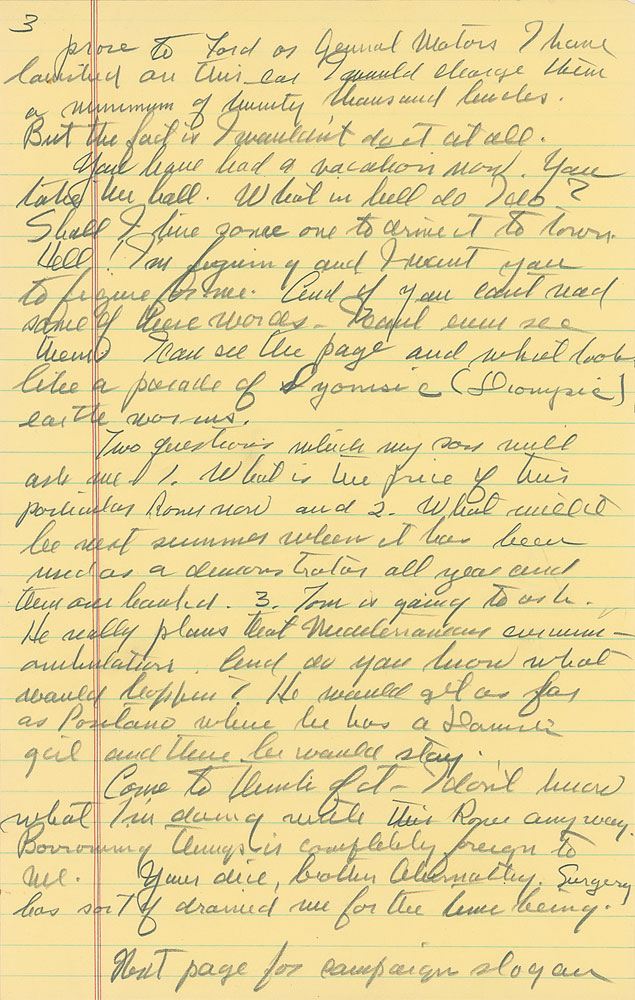 3
prove to Ford or General Motors I have
launched on this car I would charge them
a minimum of twenty thousand
But the fact is I wouldn't do it at all.
You have had a vacation now. You
take the ball. What in hell do I do?
Shall I hire some one to drive it to town.
Hell! I'm figuring and I want you
to figure for me. And if you can't read
some of these words – I can't even see
them. I can see the page and what looks
like a parade of (Dionysic)
earth worms.
Two questions which my son will
ask me. 1. What is the price of this
particular Rover now and 2. What will it
be next summer when it has been
used as a demonstrator all year and
then one hauled. 3. Tom is going to ask.
He really plans that Mediterranean circum–
ambulation. And do you know what
would happen? He would get as far
as Positano where he has a
girl and there he would stay.
Come to think of it – I don't know
what I'm doing with this Rover anyway.
Borrowing things is completely foreign to
me. Your dice, brother Abernathy. Surgery
has sort of drained me for the time being.
Next page for campaign slogan